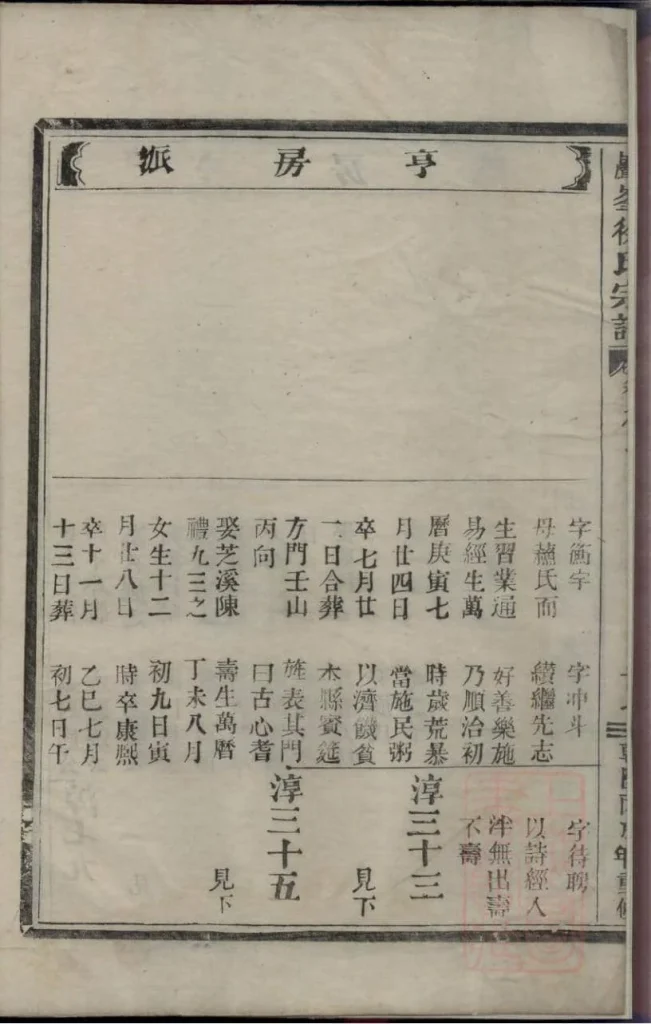 亨房派
峯徐氏宗譜
年重修
字衡宇
母赫氏而
生習業通
易經生萬
曆庚寅七
月廿四日
卒七月廿
二日合葬
方門壬山
丙向
娶芝溪陳
禮九三之
女生十二
月廿八日
卒十一月
十三日葬
字冲斗
纘繼先志
好善樂施
乃順治初
時歲荒暴
當施民粥
以濟饑貧
本縣賓筵
旌表其門
曰古心耆
壽生萬曆
丁未八月
初九日寅
時卒康熙
乙巳七月
初七日午
字待聘
以詩經入
泮無出壽
不壽
淳三十三
見下
淳三十五
見下